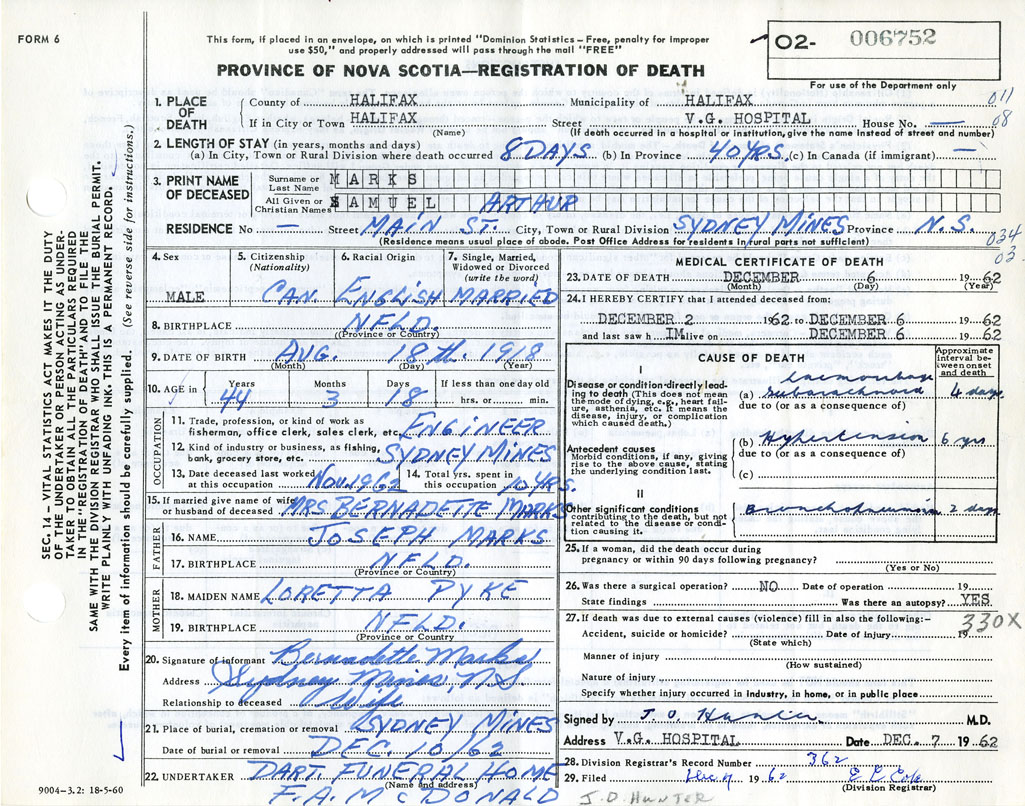 FORM 6
This form, if placed in an envelope, on which is printed "Dominion Statistics – Free, penalty for improper
use $50," and properly addressed will pass through the mail "FREE"
02- 006752
For use of the Department only
PROVINCE OF NOVA SCOTIA—REGISTRATION OF DEATH
1. PLACE OF DEATH
County of HALIFAX Municipality of HALIFAX 011
If in City or Town HALIFAX Street V.G. HOSPITAL House No. — 08
(Name) (If death occurred in a hospital or institution, give the name instead of street and number)
2. LENGTH OF STAY (in years, months and days)
(a) In City, Town or Rural Division where death occurred 8 DAYS (b) In Province 40 YRS. (c) In Canada (if immigrant) —
3. PRINT NAME OF DECEASED
Surname or Last Name MARKS
All Given or Christian Names SAMUEL ARTHUR
RESIDENCE No — Street MAIN ST. City, Town or Rural Division SYDNEY MINES Province N.S.
(Residence means usual place of abode. Post Office Address for residents in rural parts not sufficient)
034
02
4. Sex
MALE
5. Citizenship (Nationality)
CAN.
6. Racial Origin
ENGLISH
7. Single, Married, Widowed or Divorced (write the word)
MARRIED
8. BIRTHPLACE NFLD.
(Province or Country)
9. DATE OF BIRTH AUG. 18th. 1918
(Month) (Day) (Year)
10. AGE in Years 44 Months 3 Days 18 If less than one day old hrs. or min.
OCCUPATION
11. Trade, profession, or kind of work as
fisherman, office clerk, sales clerk, etc. ENGINEER
12. Kind of industry or business, as fishing,
bank, grocery store, etc. SYDNEY MINES
13. Date deceased last worked at this occupation NOV. 1962
14. Total yrs. spent in this occupation 10 YRS.
15. If married give name of wife
or husband of deceased MRS. BERNADETTE MARKS
FATHER
16. NAME JOSEPH MARKS
17. BIRTHPLACE NFLD.
(Province or Country)
MOTHER
18. MAIDEN NAME LORETTA PYKE
19. BIRTHPLACE NFLD.
(Province or Country)
20. Signature of informant Bernadette Marks
Address Sydney Mines, N.S.
Relationship to deceased Wife
21. Place of burial, cremation or removal SYDNEY MINES
Date of burial or removal DEC. 10/62
22. UNDERTAKER DART. FUNERAL HOME
(Name and address)
F.A. McDONALD
MEDICAL CERTIFICATE OF DEATH
23. DATE OF DEATH DECEMBER 6 1962
(Month) (Day) (Year)
24. I HEREBY CERTIFY that I attended deceased from:
DECEMBER 2 1962 to DECEMBER 6 1962
and last saw h IM alive on DECEMBER 6 1962
CAUSE OF DEATH
Approximate interval between onset and death
I
Disease or condition directly leading to death (This does not mean the mode of dying, e.g., heart failure, asthenia, etc. It means the disease, injury, or complication which caused death.)
haemorrhage
(a) subarachnoid 4 days
due to (or as a consequence of)
Antecedent causes
Morbid conditions, if any, giving rise to the above cause, stating the underlying condition last.
(b) Hypertension 6 yrs
due to (or as a consequence of)
(c)
II
Other significant conditions
contributing to the death, but not related to the disease or condition causing it.
Bronchopneumonia 2 days
25. If a woman, did the death occur during
pregnancy or within 90 days following pregnancy?
(Yes or No)
26. Was there a surgical operation? NO Date of operation 19
State findings Was there an autopsy? YES
27. If death was due to external causes (violence) fill in also the following:– 330X
Accident, suicide or homicide? Date of injury 19
(State which)
Manner of injury
(How sustained)
Nature of injury
Specify whether injury occurred in industry, in home, or in public place
Signed by J. O. Hunter M.D.
Address V.G. HOSPITAL Date DEC. 7 1962
28. Division Registrar's Record Number 362
29. Filed Dec 7 1962
(Division Registrar)
J.D. HUNTER
SEC. 14 – VITAL STATISTICS ACT MAKES IT THE DUTY
OF THE UNDERTAKER OR PERSON ACTING AS UNDER-
TAKER TO OBTAIN ALL THE PARTICULARS REQUIRED
IN THE "REGISTRATION OF DEATH" AND TO FILE THE
SAME WITH THE DIVISION REGISTRAR WHO SHALL ISSUE THE BURIAL PERMIT.
WRITE PLAINLY WITH UNFADING INK. THIS IS A PERMANENT RECORD.
Every item of information should be carefully supplied. (See reverse side for instructions.)
9004–3.2: 18-5-60